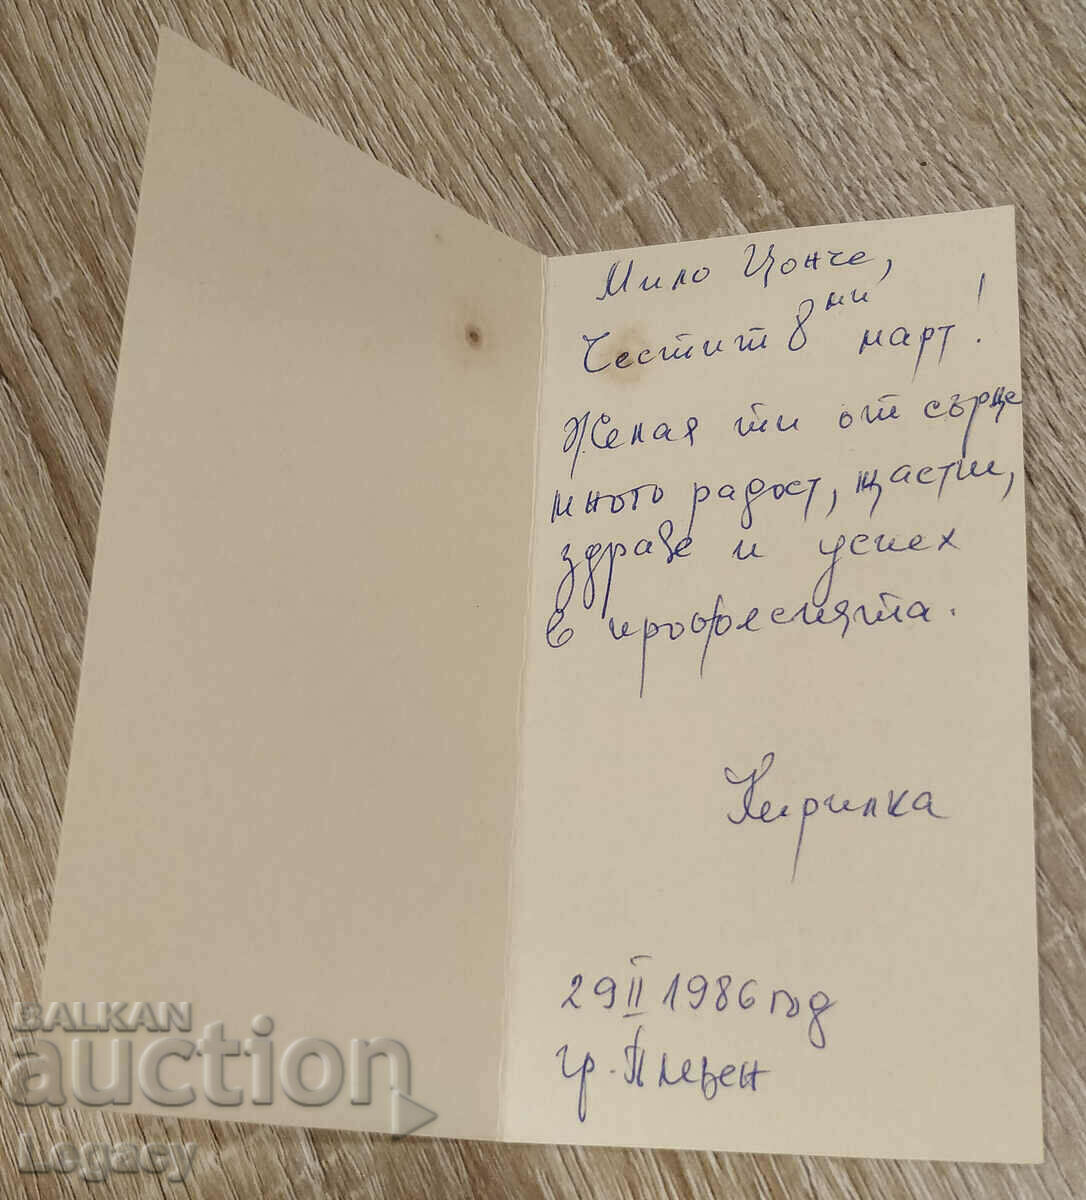 Мило Цонче,
Честит 8ми март!
Желая ти от сърце
много радост, щастие,
здраве и успех
в професията.
Кирилка
29 II 1986 год
гр. Плевен
BALKAN
auction
Legacy